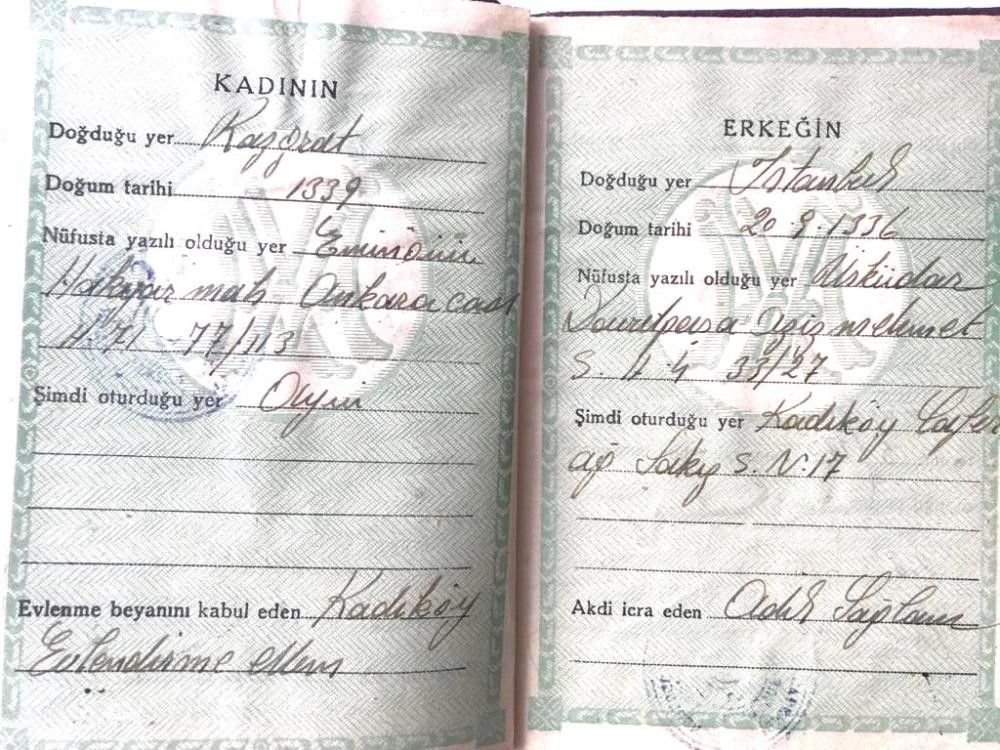 KADININ
Doğduğu yer
Doğum tarihi 1339
Nüfusta yazılı olduğu yer Eminönü
mah Ankara cad
H. 71 - 77/113
Şimdi oturduğu yer
Evlenme beyanını kabul eden Kadıköy
Evlendirme
ERKEĞİN
Doğduğu yer İstanbul
Doğum tarihi 20.9.1336
Nüfusta yazılı olduğu yer Üsküdar
mehmet
S. 33/27
Şimdi oturduğu yer Kadıköy Cafer
ağ S. N: 17
Akdi icra eden Adil Sağlam